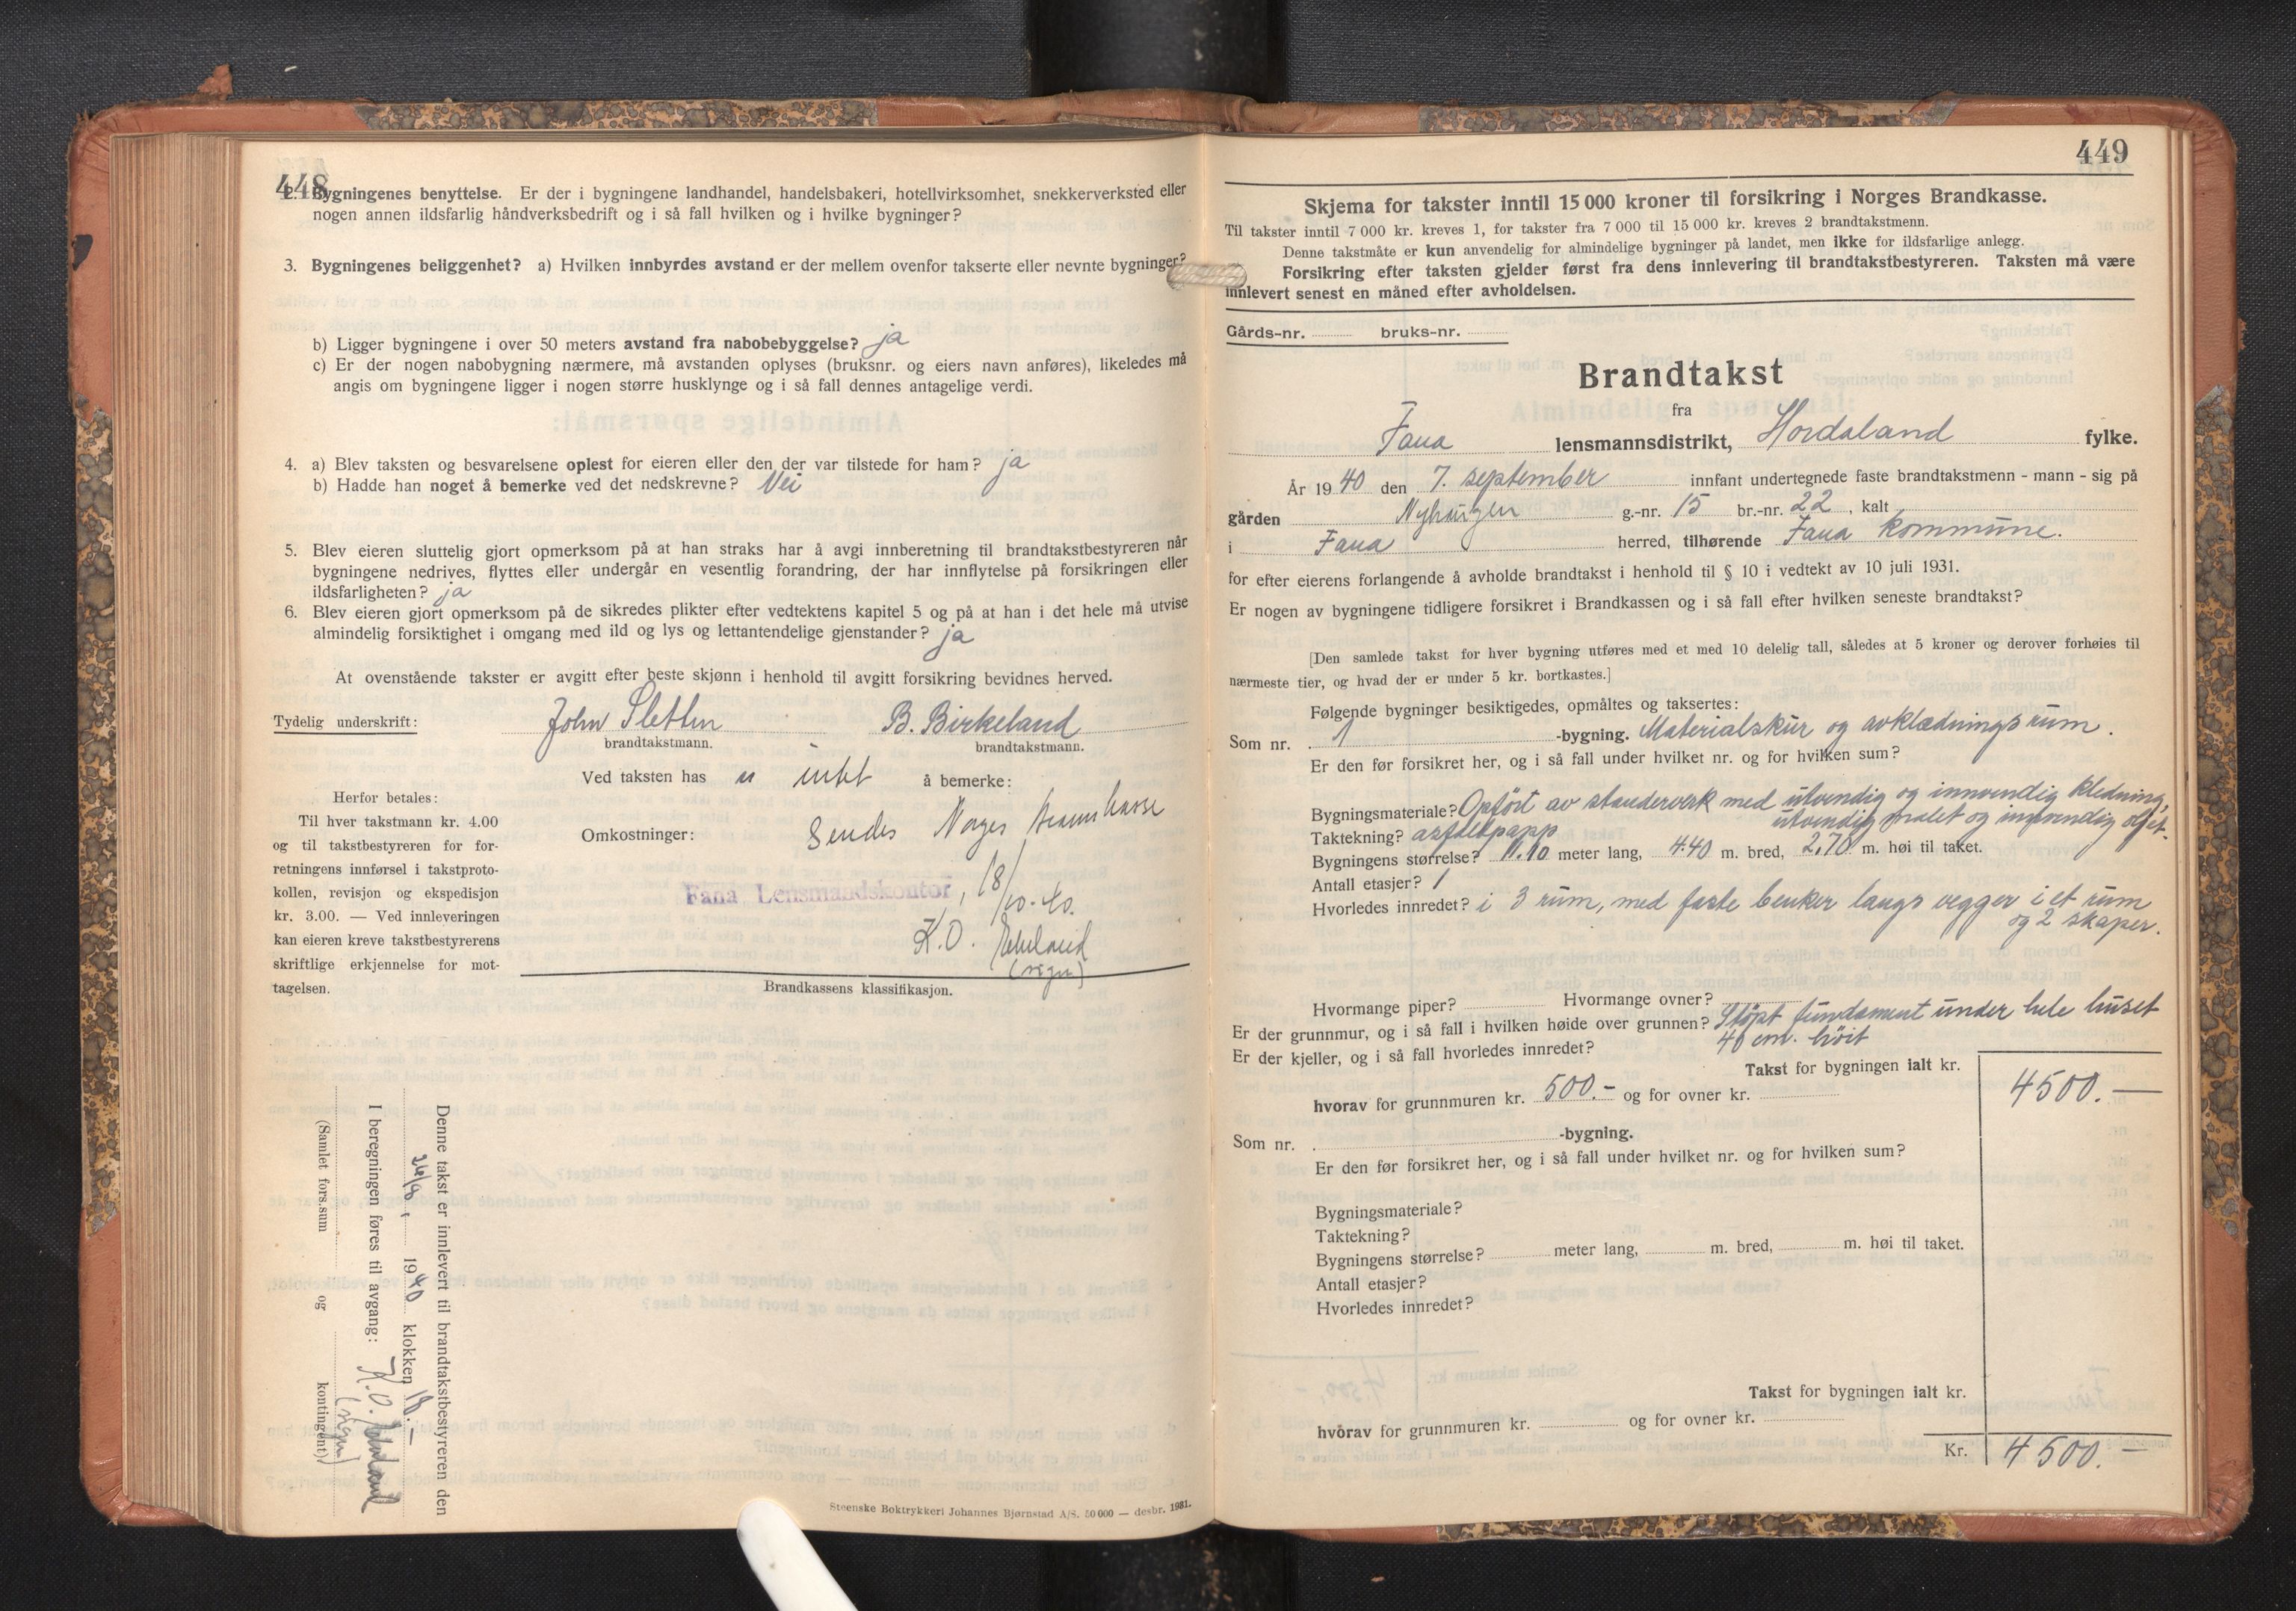 448
2. Bygningenes benyttelse. Er der i bygningene landhandel, handelsbakeri, hotellvirksomhet, snekkerverksted eller
nogen annen ildsfarlig håndverksbedrift og i så fall hvilken og i hvilke bygninger?
3. Bygningenes beliggenhet? a) Hvilken innbyrdes avstand er der mellem ovenfor takserte eller nevnte bygninger?
b) Ligger bygningene i over 50 meters avstand fra nabobebyggelse? ja
c) Er der nogen nabobygning nærmere, må avstanden oplyses (bruksnr. og eiers navn anføres), likeledes må
angis om bygningene ligger i nogen større husklynge og i så fall dennes antagelige verdi.
4. a) Blev taksten og besvarelsene oplest for eieren eller den der var tilstede for ham? ja
b) Hadde han noget å bemerke ved det nedskrevne? Nei
5. Blev eieren sluttelig gjort opmerksom på at han straks har å avgi innberetning til brandtakstbestyreren når
bygningene nedrives, flyttes eller undergår en vesentlig forandring, der har innflytelse på forsikringen eller
ildsfarligheten? ja
6. Blev eieren gjort opmerksom på de sikredes plikter efter vedtektens kapitel 5 og på at han i det hele må utvise
almindelig forsiktighet i omgang med ild og lys og lettantendelige gjenstander? ja
At ovenstående takster er avgitt efter beste skjønn i henhold til avgitt forsikring bevidnes herved.
Tydelig underskrift: John Sletten B. Birkeland
brandtakstmann. brandtakstmann.
Ved taksten has intet å bemerke:
Omkostninger: Sendes Norges
Fana Lensmandskontor, 18/10-40.
K.O.
(sign)
Herfor betales:
Til hver takstmann kr. 4.00
og til takstbestyreren for for-
retningens innførsel i takstproto-
kollen, revisjon og ekspedisjon
kr. 3.00. — Ved innleveringen
kan eieren kreve takstbestyrerens
skriftlige erkjennelse for mot-
tagelsen.
Brandkassens klassifikasjon.
Denne takst er innlevert til brandtakstbestyreren den
1940 klokken 18.-
I beregningen føres til avgang: K.O.
(sign)
(Samlet fors.sum og kontingent)
Steenske Boktrykkeri Johannes Bjørnstad A/S. 50 000 — desbr. 1931.
449
Skjema for takster inntil 15 000 kroner til forsikring i Norges Brandkasse.
Til takster inntil 7 000 kr. kreves 1, for takster fra 7 000 til 15 000 kr. kreves 2 brandtakstmenn.
Denne takstmåte er kun anvendelig for almindelige bygninger på landet, men ikke for ildsfarlige anlegg.
Forsikring efter taksten gjelder først fra dens innlevering til brandtakstbestyreren. Taksten må være
innlevert senest en måned efter avholdelsen.
Gårds-nr. bruks-nr.
Brandtakst
fra
Fana lensmannsdistrikt, Hordaland fylke.
År 1940 den 7. september innfant undertegnede faste brandtakstmenn - mann - sig på
gården Nyhaugen g.-nr. 15 br.-nr. 22, kalt
i Fana herred, tilhørende Fana kommune.
for efter eierens forlangende å avholde brandtakst i henhold til § 10 i vedtekt av 10 juli 1931.
Er nogen av bygningene tidligere forsikret i Brandkassen og i så fall efter hvilken seneste brandtakst?
[Den samlede takst for hver bygning utføres med et med 10 delelig tall, således at 5 kroner og derover forhøies til
nærmeste tier, og hvad der er under 5 kr. bortkastes.]
Følgende bygninger besiktigedes, opmåltes og taksertes:
Som nr. 1 -bygning. Materialskur og avklædningsrum.
Er den før forsikret her, og i så fall under hvilket nr. og for hvilken sum?
Bygningsmateriale? Opført av standerverk med utvendig og innvendig kledning,
utvendig malet og innvendig oljet.
Taktekning? asfaltpapp
Bygningens størrelse? 11.10 meter lang, 4.40 m. bred, 2.70 m. høi til taket.
Antall etasjer? 1
Hvorledes innredet? i 3 rum, med faste benker langs vegger i et rum
og 2 skaper.
Hvormange piper? Hvormange ovner?
Er der grunnmur, og i så fall i hvilken høide over grunnen? Støpt fundament under hele huset
40 cm. høit
Er der kjeller, og i så fall hvorledes innredet?
Takst for bygningen ialt kr. 4500.—
hvorav for grunnmuren kr. 500.- og for ovner kr.
Som nr. -bygning.
Er den før forsikret her, og i så fall under hvilket nr. og for hvilken sum?
Bygningsmateriale?
Taktekning?
Bygningens størrelse? meter lang, m. bred, m. høi til taket.
Antall etasjer?
Hvorledes innredet?
Takst for bygningen ialt kr.
hvorav for grunnmuren kr. og for ovner kr.
Kr. 4500.—